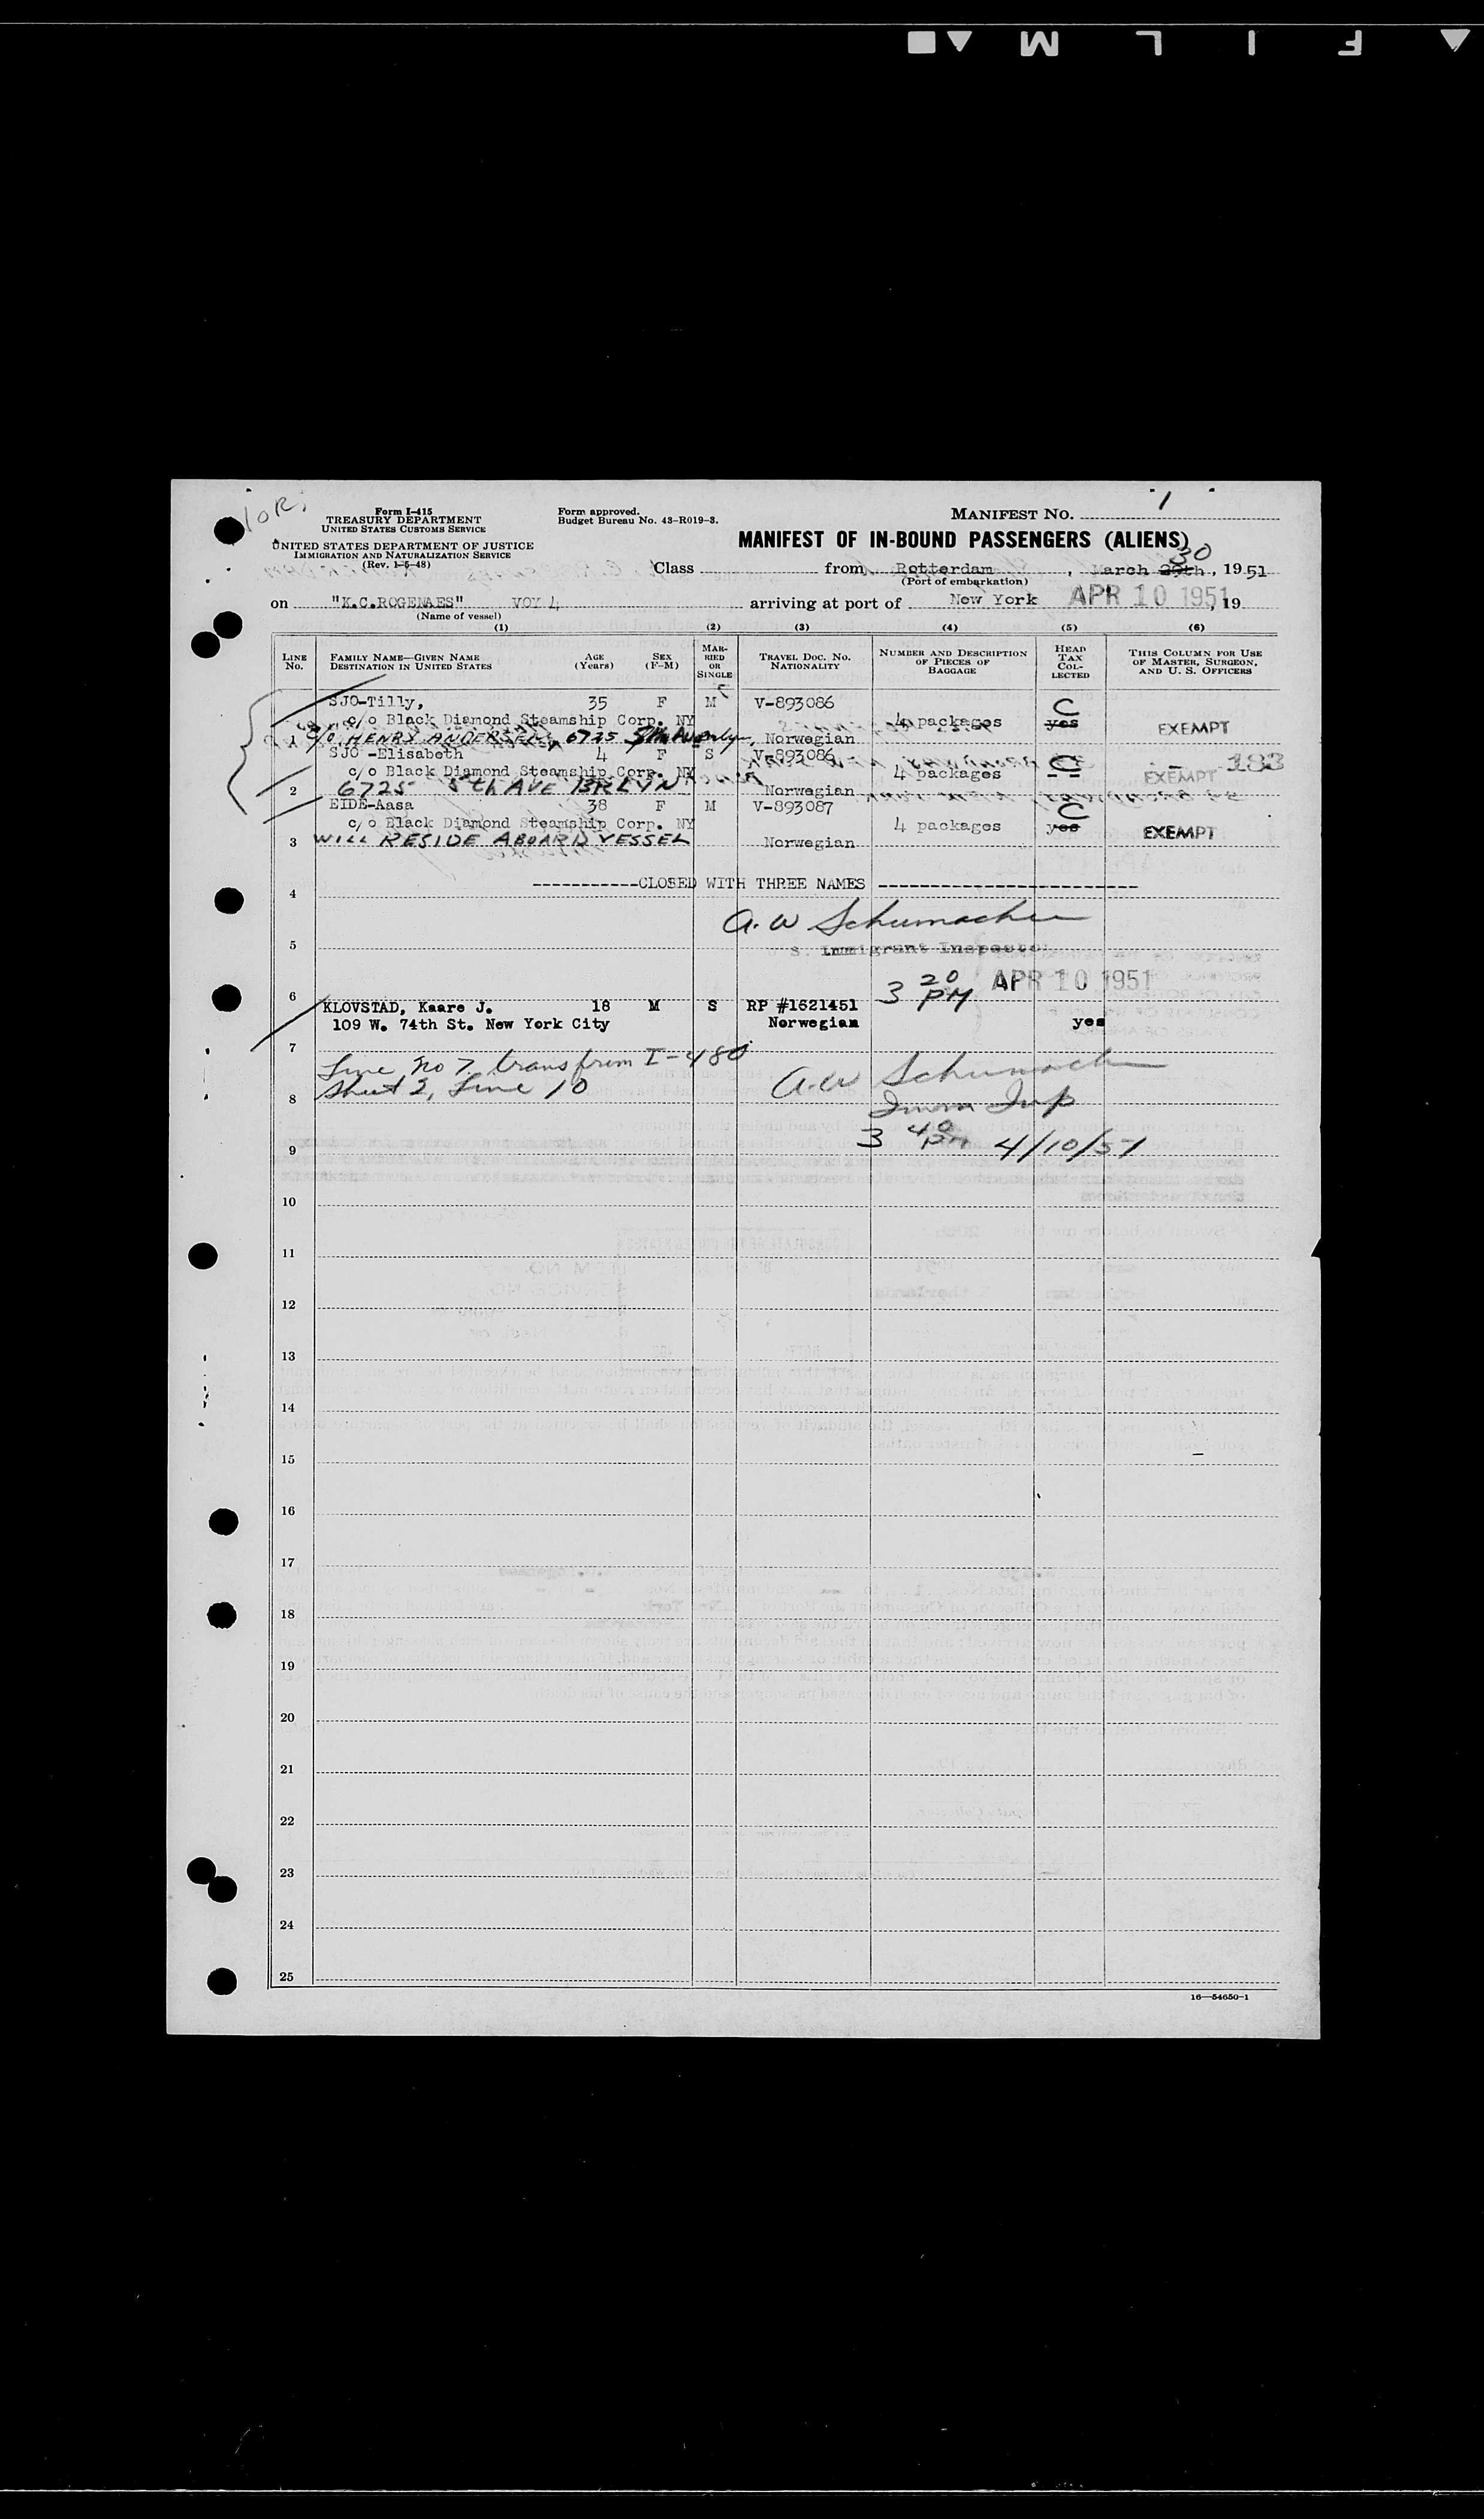 F I L M
Form I-415
TREASURY DEPARTMENT
UNITED STATES CUSTOMS SERVICE
UNITED STATES DEPARTMENT OF JUSTICE
IMMIGRATION AND NATURALIZATION SERVICE
(Rev. 1-5-48)
Form approved.
Budget Bureau No. 43-R019-3.
MANIFEST NO. 1
MANIFEST OF IN-BOUND PASSENGERS (ALIENS)
30
Class from Rotterdam, March 29th, 1951
(Port of embarkation)
on "K.C.ROGENAES" VOY 4 arriving at port of New York APR 10 1951, 19
(Name of vessel)
(1) (2) (3) (4) (5) (6)
LINE No. FAMILY NAME—GIVEN NAME DESTINATION IN UNITED STATES AGE (Years) SEX (F-M) MARRIED OR SINGLE TRAVEL DOC. NO. NATIONALITY NUMBER AND DESCRIPTION OF PIECES OF BAGGAGE HEAD TAX COLLECTED THIS COLUMN FOR USE OF MASTER, SURGEON, AND U. S. OFFICERS
SJO-Tilly, 35 F M V-893086 C
c/o Black Diamond Steamship Corp. NY 4 packages yes EXEMPT
1 c/o HENRY ANDERSEN, 6725 5th Ave Norwegian
SJO -Elisabeth 4 F S V-893086 C 183
c/o Black Diamond Steamship Corp. NY 4 packages -- EXEMPT
2 6725 5th AVE BRLYN Norwegian
EIDE-Aasa 38 F M V-893087 C
c/o Black Diamond Steamship Corp. NY 4 packages yes EXEMPT
3 WILL RESIDE ABOARD VESSEL Norwegian
-----------CLOSED WITH THREE NAMES -------------------------
4
A. W Schumacher
5 S. Immigrant Inspector
3 20 PM APR 10 1951
6
KLOVSTAD, Kaare J. 18 M S RP #1621451
109 W. 74th St. New York City Norwegian yes
7
Line No 7 trans from I-480
Sheet 2, Line 10 A.W Schumacher
8 Imm Insp
3 40 PM 4/10/51
9
10
11
12
13
14
15
16
17
18
19
20
21
22
23
24
25
16—54650-1